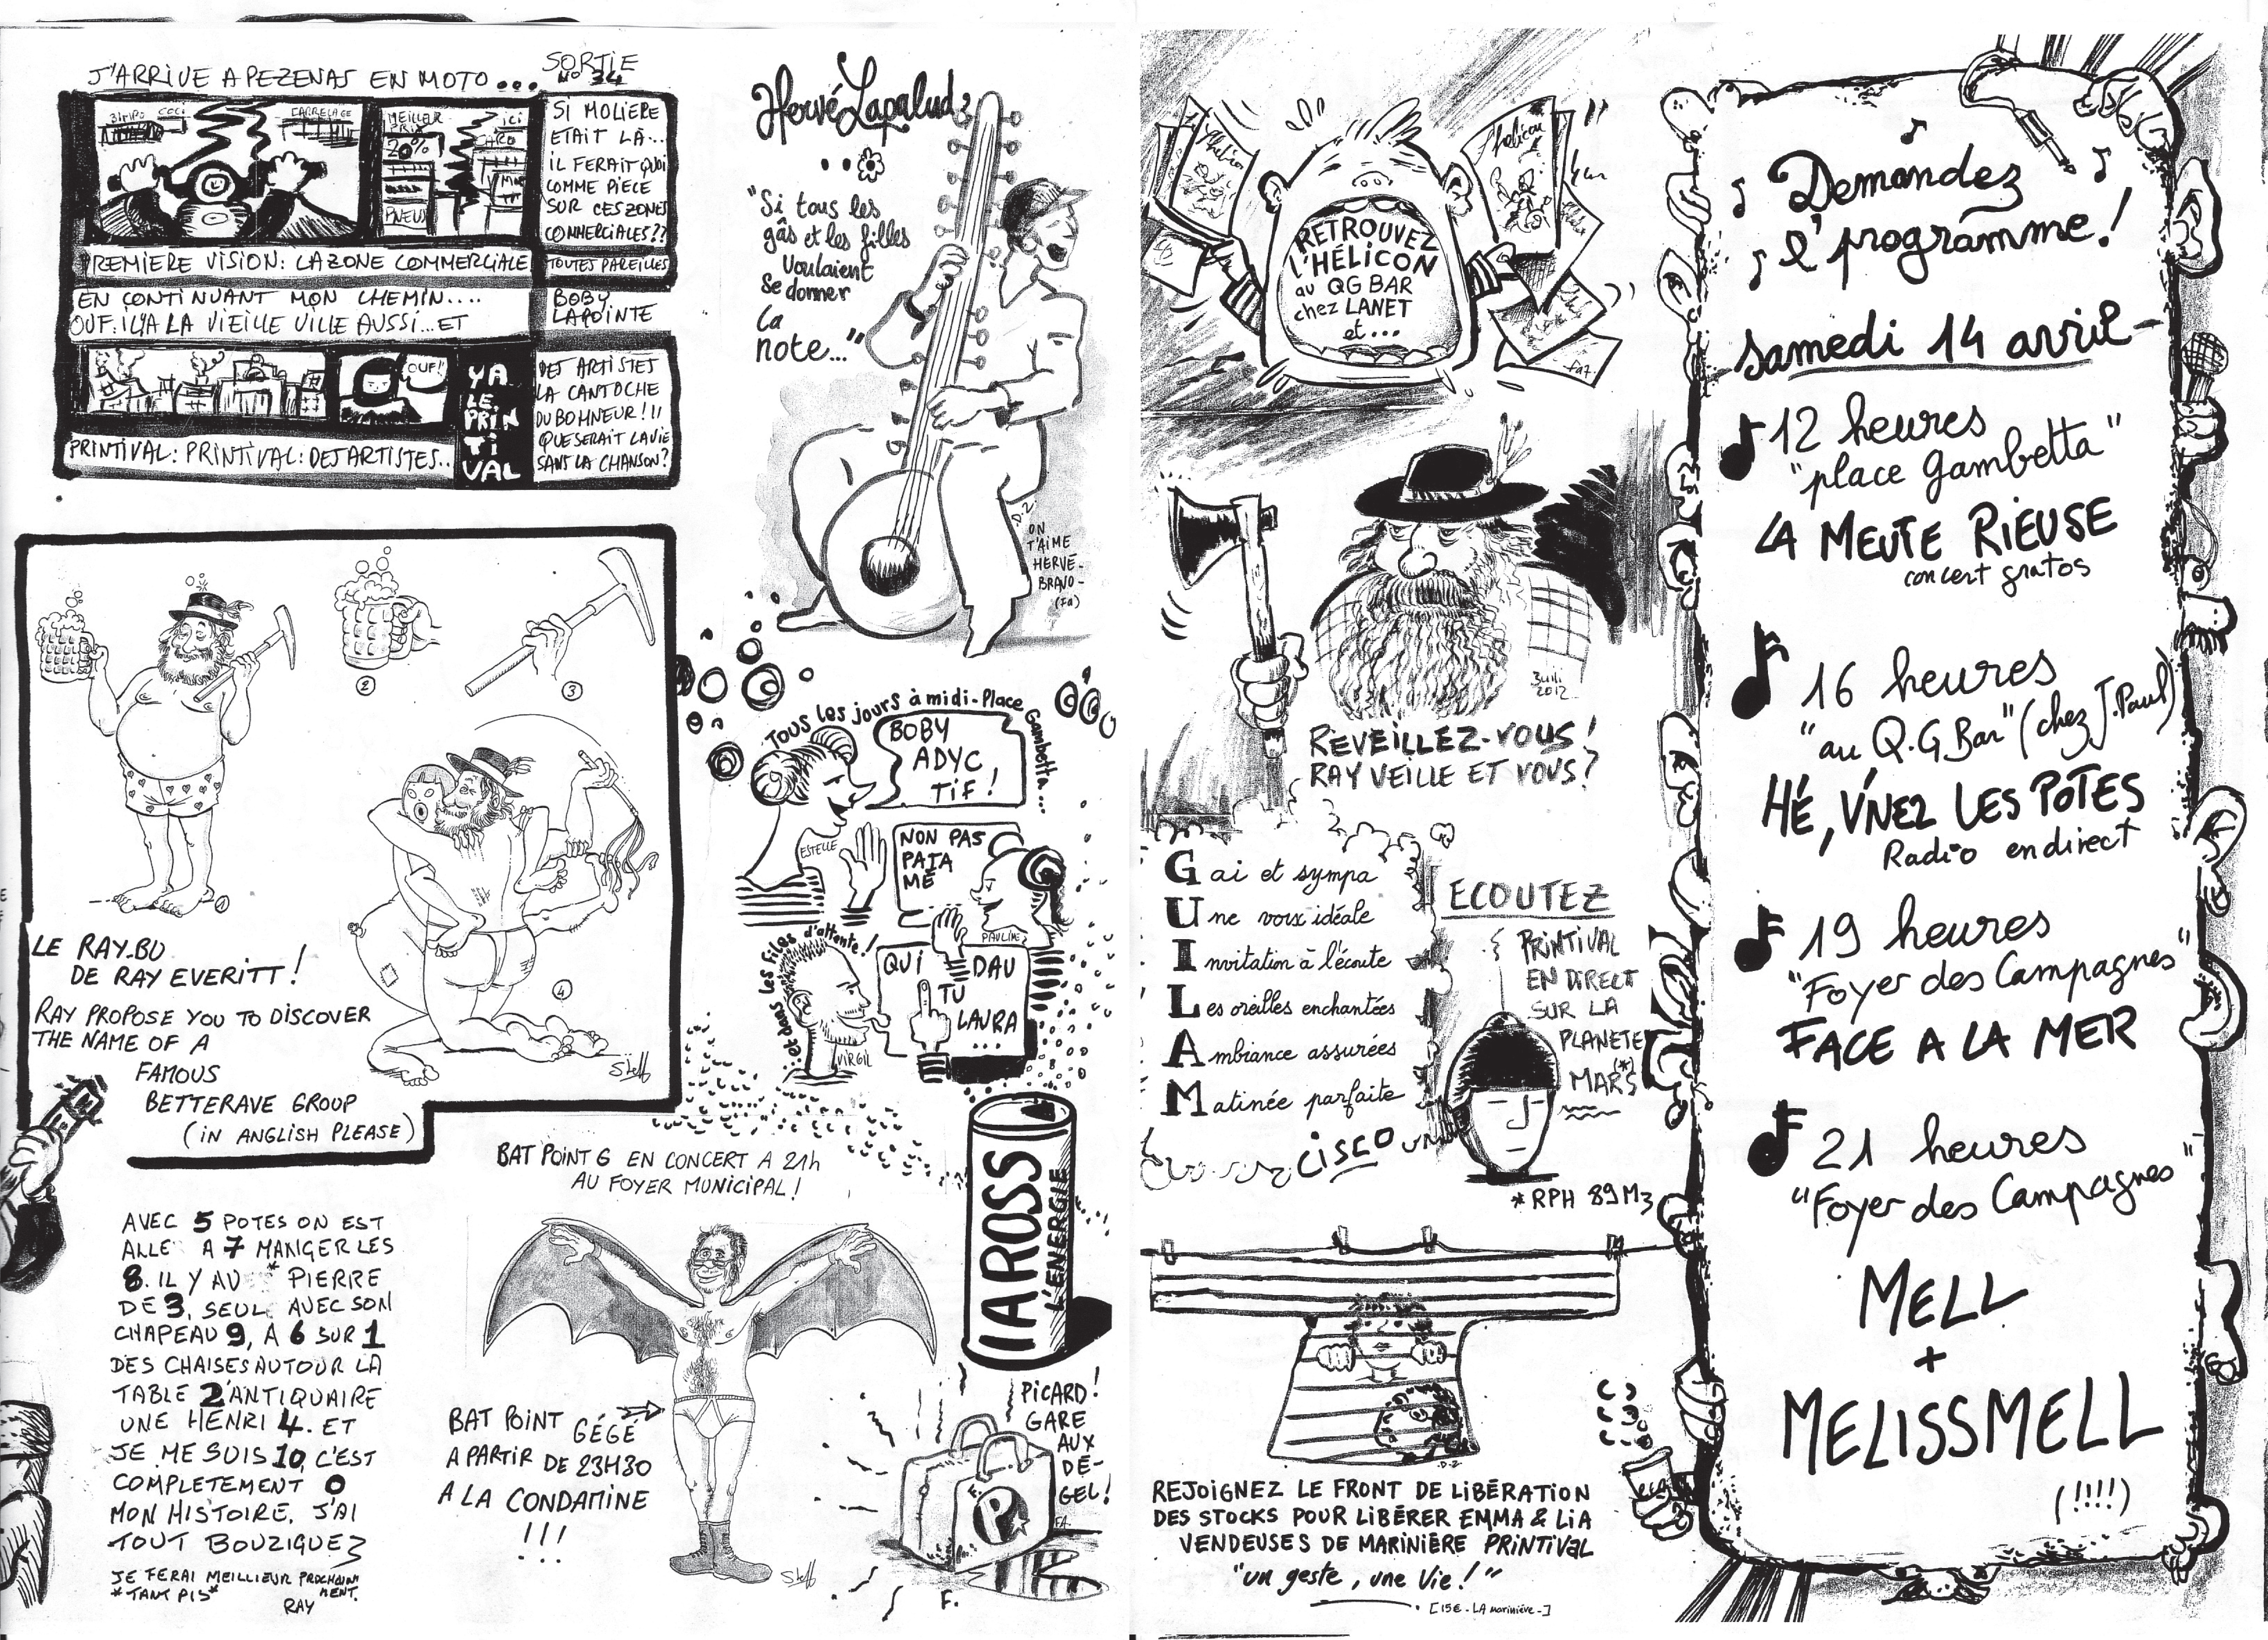 J'ARRIVE A PEZENAS EN MOTO...
SORTIE
N° 34
BIMPO
COCI
CARRELAGE
MEILLEUR
PRIX
20%
ici
CARO
PNEUS
SI MOLIERE
ETAIT LÀ...
IL FERAIT QUOI
COMME PIECE
SUR CES ZONES
COMMERCIALES??
TOUTES PAREILLES
PREMIERE VISION: LA ZONE COMMERCIALE
EN CONTINUANT MON CHEMIN....
OUF: IL Y A LA VIEILLE VILLE AUSSI...ET
BOBY
LAPOINTE
OUF!
YA
LE
PRIN
Ti
VAL
DES ARTISTES
LA CANTOCHE
DU BONHEUR!!!
QUE SERAIT LA VIE
SANS LA CHANSON?
PRINTIVAL: PRINTIVAL: DES ARTISTES..
1
2
3
4
LE RAY.BU
DE RAY EVERITT!
RAY PROPOSE YOU TO DISCOVER
THE NAME OF A
FAMOUS
BETTERAVE GROUP
(IN ANGLISH PLEASE)
Steff
AVEC 5 POTES ON EST
ALLE A 7 MANGER LES
8. IL Y AV * PIERRE
DE 3, SEUL AVEC SON
CHAPEAU 9, A 6 SUR 1
DES CHAISES AUTOUR LA
TABLE 2'ANTIQUAIRE
UNE HENRI 4. ET
JE ME SUIS 10, C'EST
COMPLETEMENT 0
MON HISTOIRE, J'AI
TOUT BOUZIGUEZ
JE FERAI MEILLIEUR PROCHAIN
MENT.
*TANT PIS*
RAY
Hervé Lapalud
"Si tous les
gâs et les filles
Voulaient
Se donner
La
note..."
D.Z
ON
T'AIME
HERVÉ-
BRAVO-
(Fa)
TOUS les jours à midi-Place Gambetta...
BOBY
ADYC
TIF!
ESTELLE
NON PAS
PATA
MÉ
PAULINE
et dans les files d'attente!
QUI
DAU
TU
LAURA
...
VIRGIL
BAT POINT G EN CONCERT A 21h
AU FOYER MUNICIPAL!
BAT POINT GÉGÉ
A PARTIR DE 23H30
A LA CONDAMINE
!!!
Steff
IAROSS
L'ÉNERGIE
PICARD!
GARE
AUX
DÉ-
GEL!
FA.
F. P
F.
l'hélicon
l'hélicon
RETROUVEZ
L'HÉLICON
au QG BAR
chez LANET
et...
3 Mili
2012
REVEILLEZ-VOUS!
RAY VEILLE ET VOUS?
Gai et sympa
Une voix idéale
Invitation à l'écoute
Les oreilles enchantées
Ambiance assurées
Matinée parfaite
CISCO
ECOUTEZ
PRINTIVAL
EN DIRECT
SUR LA
PLANETE
(*)
MARS
*RPH 89M3
D.Z
REJOIGNEZ LE FRONT DE LIBÉRATION
DES STOCKS POUR LIBÉRER EMMA & LIA
VENDEUSES DE MARINIÈRE PRINTIVAL
"un geste, une vie!"
[15€ - LA marinière -]
Demandez
l'programme!
Samedi 14 avril-
12 heures
"place Gambetta"
LA MEUTE RIEUSE
concert gratos
16 heures
"au Q.G Bar" (chez J.Paul)
HÉ, V'NEZ LES POTES
Radio en direct
19 heures
"Foyer des Campagnes"
FACE A LA MER
21 heures
"Foyer des Campagnes"
MELL
+
MELISSMELL
(!!!!)